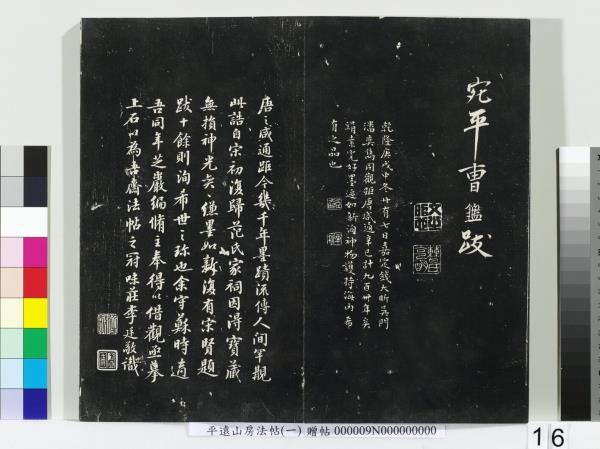 宛平曹鑑跋
乾隆庚戌中冬廿有七日嘉定錢大昕吳門
潘奕雋同觀距唐咸通辛巳計九百卅年矣
絹素完好墨迹如新洵神物護持海内希
有之品也
唐之咸通距今幾千年墨蹟流傳人間罕覯
此誥自宋初復歸范氏家祠因得寶藏
無損神光奕奕縑墨如新復有宋賢題
跋十餘則洵希世之珍也余守蘇時適
吾同年芝巖編脩主奉得以借觀亟摹
上石以為法帖之冠味莊李廷敬識
平遠山房法帖(一) 贈帖 000009N000000000
16